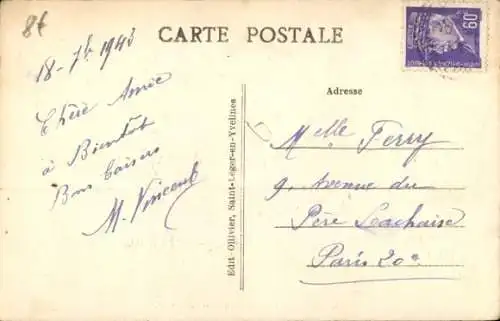 8f
CARTE POSTALE
60
18-7bre 1943
Chère Amie
à Bientôt
Bons baisers
M. Vincent
Edit-Ollivier, Saint-Léger-en-Yvelines
Adresse
Melle Ferry
9, Avenue du
Père Lachaise
Paris 20e